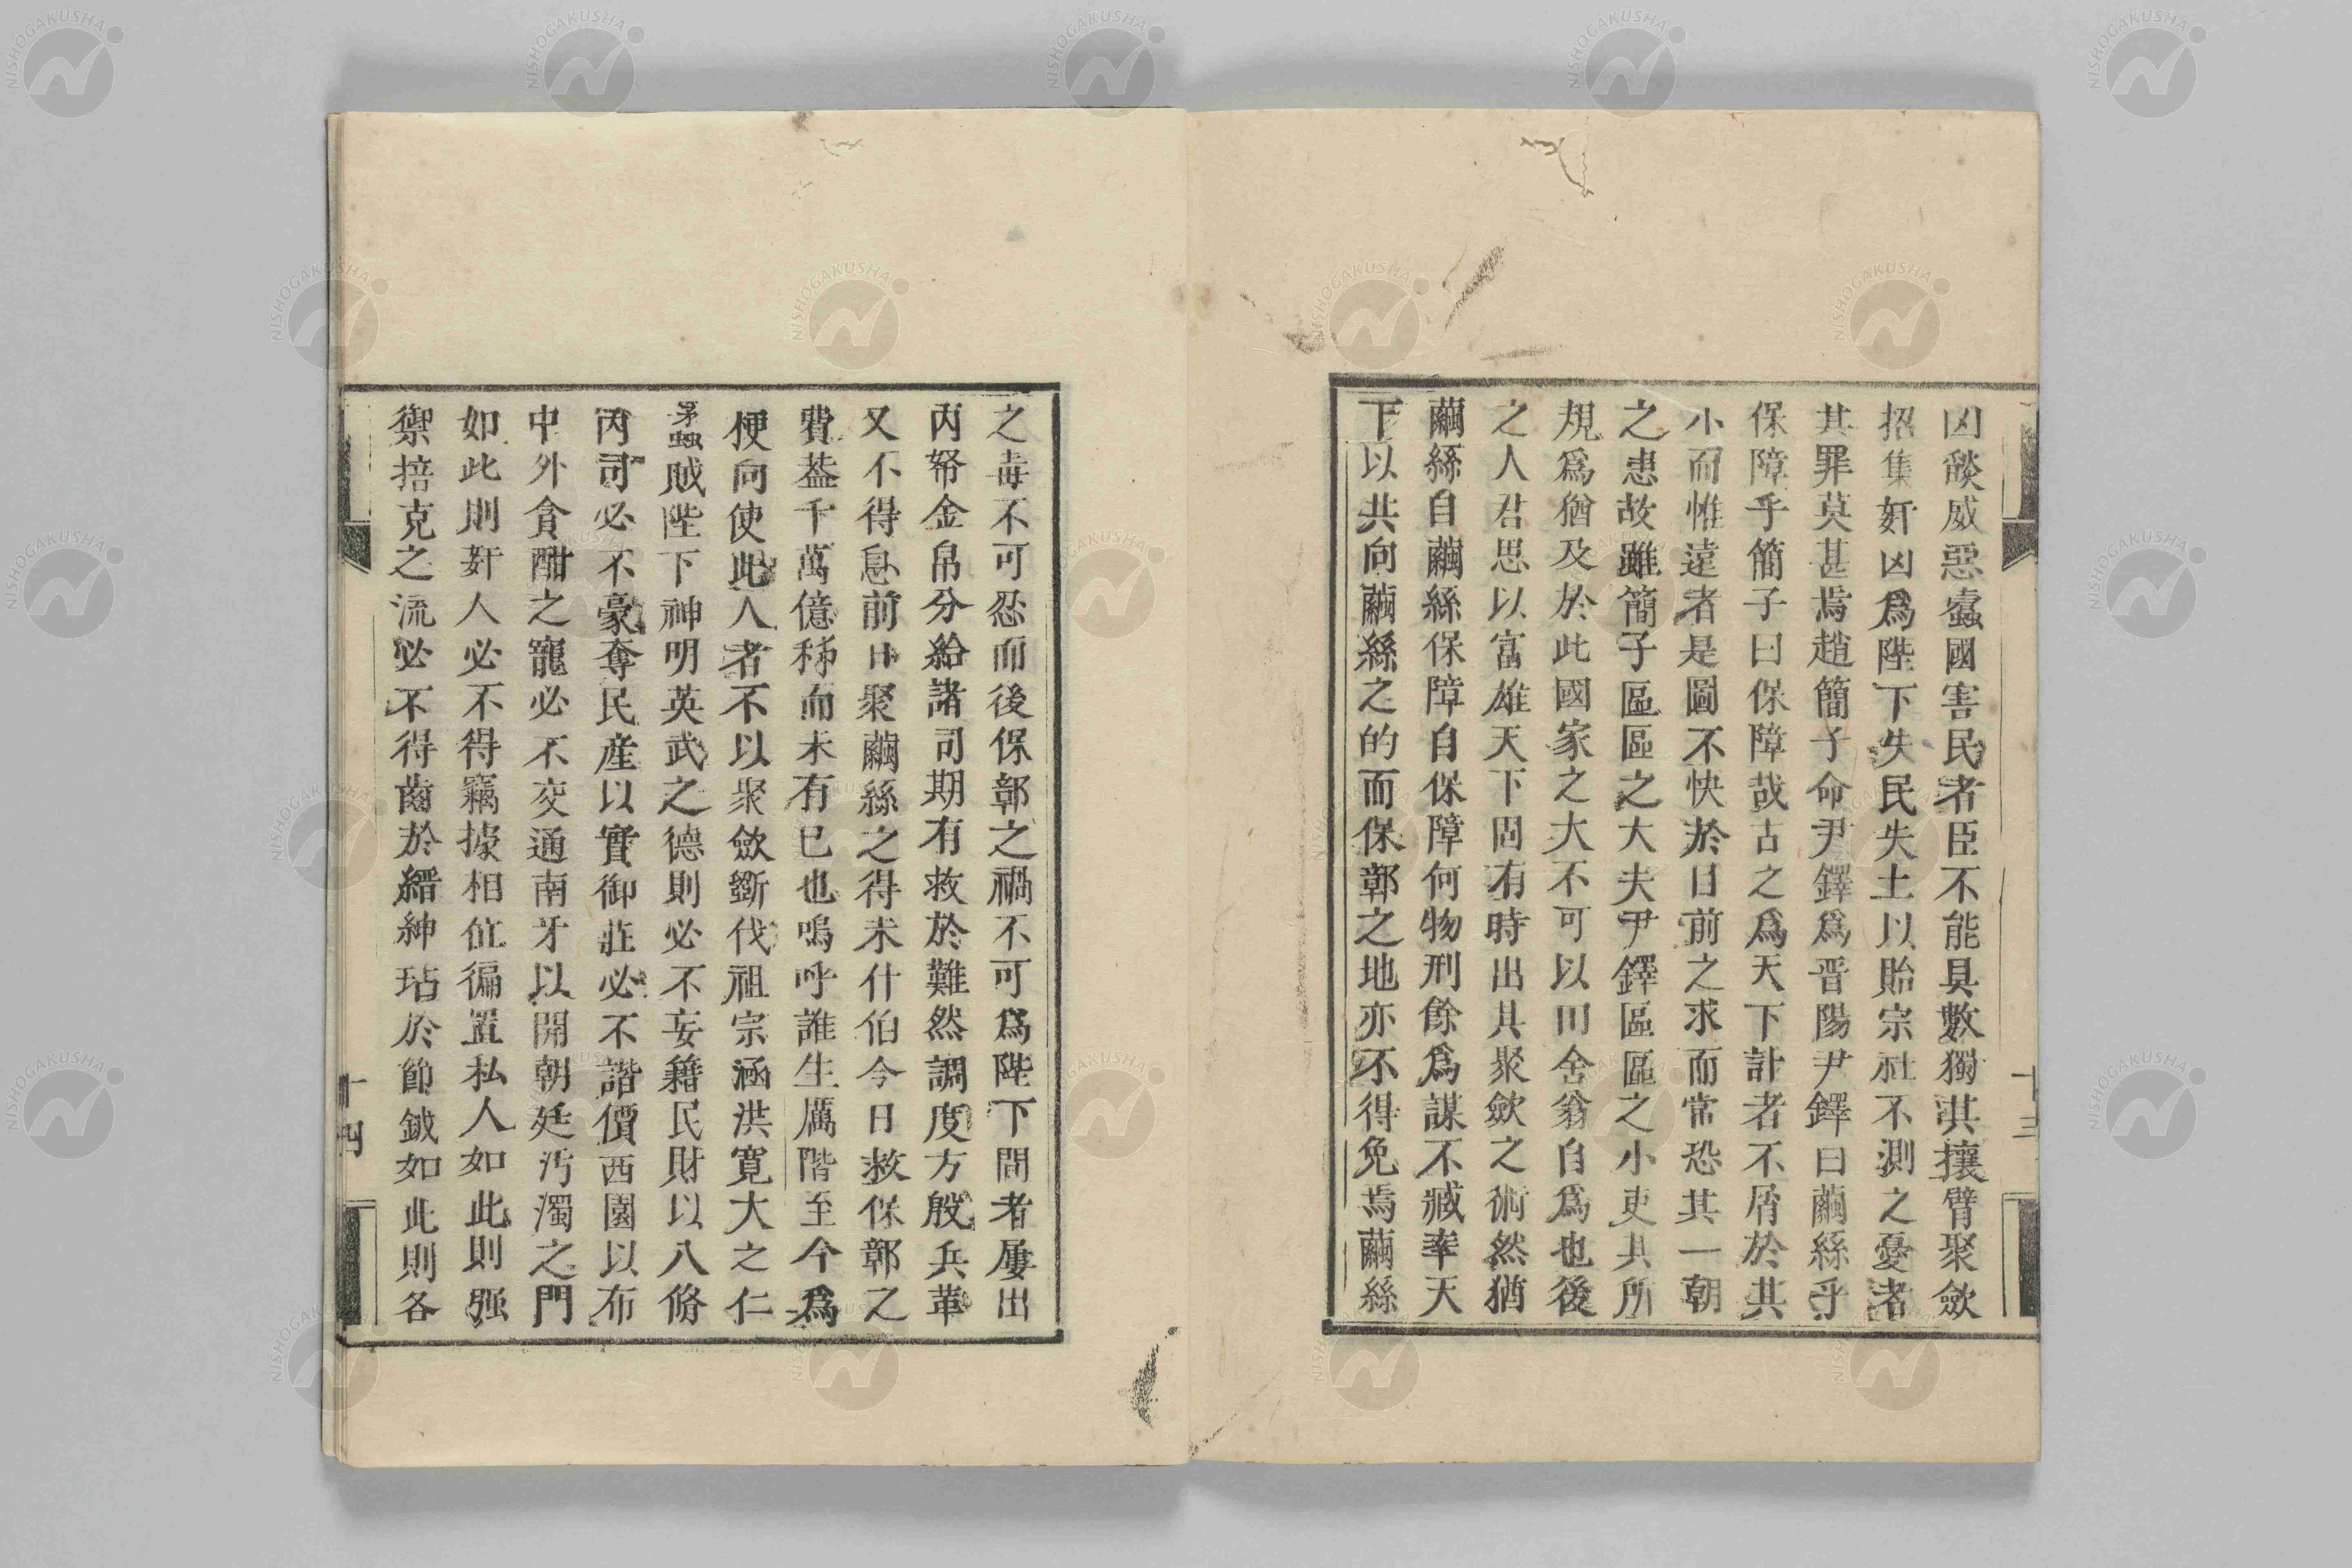 凶燄威惡蠧國害民者臣不能具數獨淇攘臂聚歛
招集奸凶爲陛下失民失土以貽宗社不測之憂者
其罪莫甚焉趙簡子命尹鐸爲晋陽尹鐸曰繭絲乎
保障乎簡子曰保障哉古之爲天下計者不屑於其
小而惟遠者是圖不快於目前之求而常恐其一朝
之患故雖簡子區區之大夫尹鐸區區之小吏其所
規爲猶及於此國家之大不可以田舍翁自爲也後
之人君思以富雄天下固有時出其聚歛之術然猶
繭絲自繭絲保障自保障何物刑餘爲謀不臧奉天
下以共向繭絲之的而保鄣之地亦不得免焉繭絲
之毒不可忍而後保鄣之禍不可爲陛下間者屢出
丙帑金帛分給諸司期有救於難然調度方殷兵革
又不得息前日聚繭絲之得未什伯今日救保鄣之
費葢千萬億秭而未有已也嗚呼誰生厲階至今爲
梗向使此人者不以聚歛斲伐祖宗涵洪寛大之仁
蟊賊陛下神明英武之德則必不妄籍民財以八脩
丙司必不豪奪民產以實御莊必不諧價西園以布
中外貪酣之寵必不交通南牙以開朝廷汚濁之門
如此則奸人必不得竊據相位徧置私人如此則强
禦掊克之流必不得齒於縉紳玷於節鉞如此則各
十三
十四
NISHOGAKUSHA